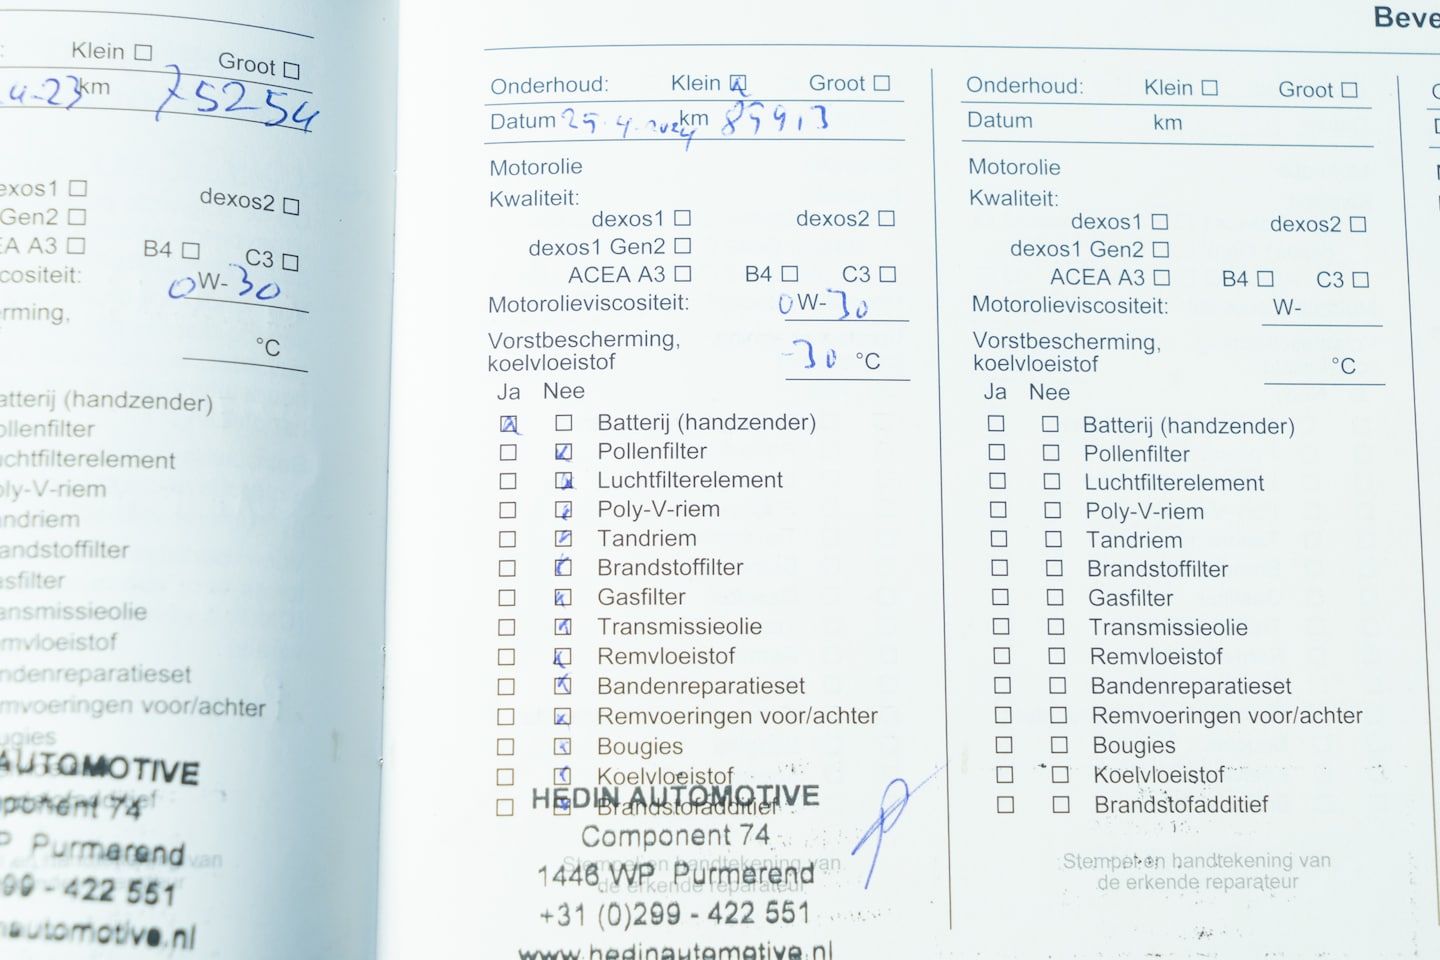 Beve
Klein ☐ Groot ☐
4-23 km 75254
dexos2 ☐
Gen2 ☐
A3 ☐ B4 ☐ C3 ☐
0W-30
°C
(handzender)
AUTOMOTIVE
74
Purmerend
99 - 422 551
Onderhoud: Klein ☒ Groot ☐
Datum 25-4-2024 km 85913
Motorolie
Kwaliteit:
dexos1 ☐ dexos2 ☐
dexos1 Gen2 ☐
ACEA A3 ☐ B4 ☐ C3 ☐
Motorolieviscositeit: 0W-30
Vorstbescherming,
koelvloeistof -30 °C
Ja Nee
☒ ☐ Batterij (handzender)
☐ ☒ Pollenfilter
☐ ☒ Luchtfilterelement
☐ ☒ Poly-V-riem
☐ ☒ Tandriem
☐ ☒ Brandstoffilter
☐ ☒ Gasfilter
☐ ☒ Transmissieolie
☐ ☒ Remvloeistof
☐ ☒ Bandenreparatieset
☐ ☒ Remvoeringen voor/achter
☐ ☒ Bougies
☐ ☒ Koelvloeistof
☐ ☒ Brandstofadditief
HEDIN AUTOMOTIVE
Component 74
Stempel en handtekening van
1446 WP Purmerend
de erkende reparateur
+31 (0)299 - 422 551
www.hedinautomotive.nl
Onderhoud: Klein ☐ Groot ☐
Datum km
Motorolie
Kwaliteit:
dexos1 ☐ dexos2 ☐
dexos1 Gen2 ☐
ACEA A3 ☐ B4 ☐ C3 ☐
Motorolieviscositeit: W-
Vorstbescherming,
koelvloeistof °C
Ja Nee
☐ ☐ Batterij (handzender)
☐ ☐ Pollenfilter
☐ ☐ Luchtfilterelement
☐ ☐ Poly-V-riem
☐ ☐ Tandriem
☐ ☐ Brandstoffilter
☐ ☐ Gasfilter
☐ ☐ Transmissieolie
☐ ☐ Remvloeistof
☐ ☐ Bandenreparatieset
☐ ☐ Remvoeringen voor/achter
☐ ☐ Bougies
☐ ☐ Koelvloeistof
☐ ☐ Brandstofadditief
Stempel en handtekening van
de erkende reparateur